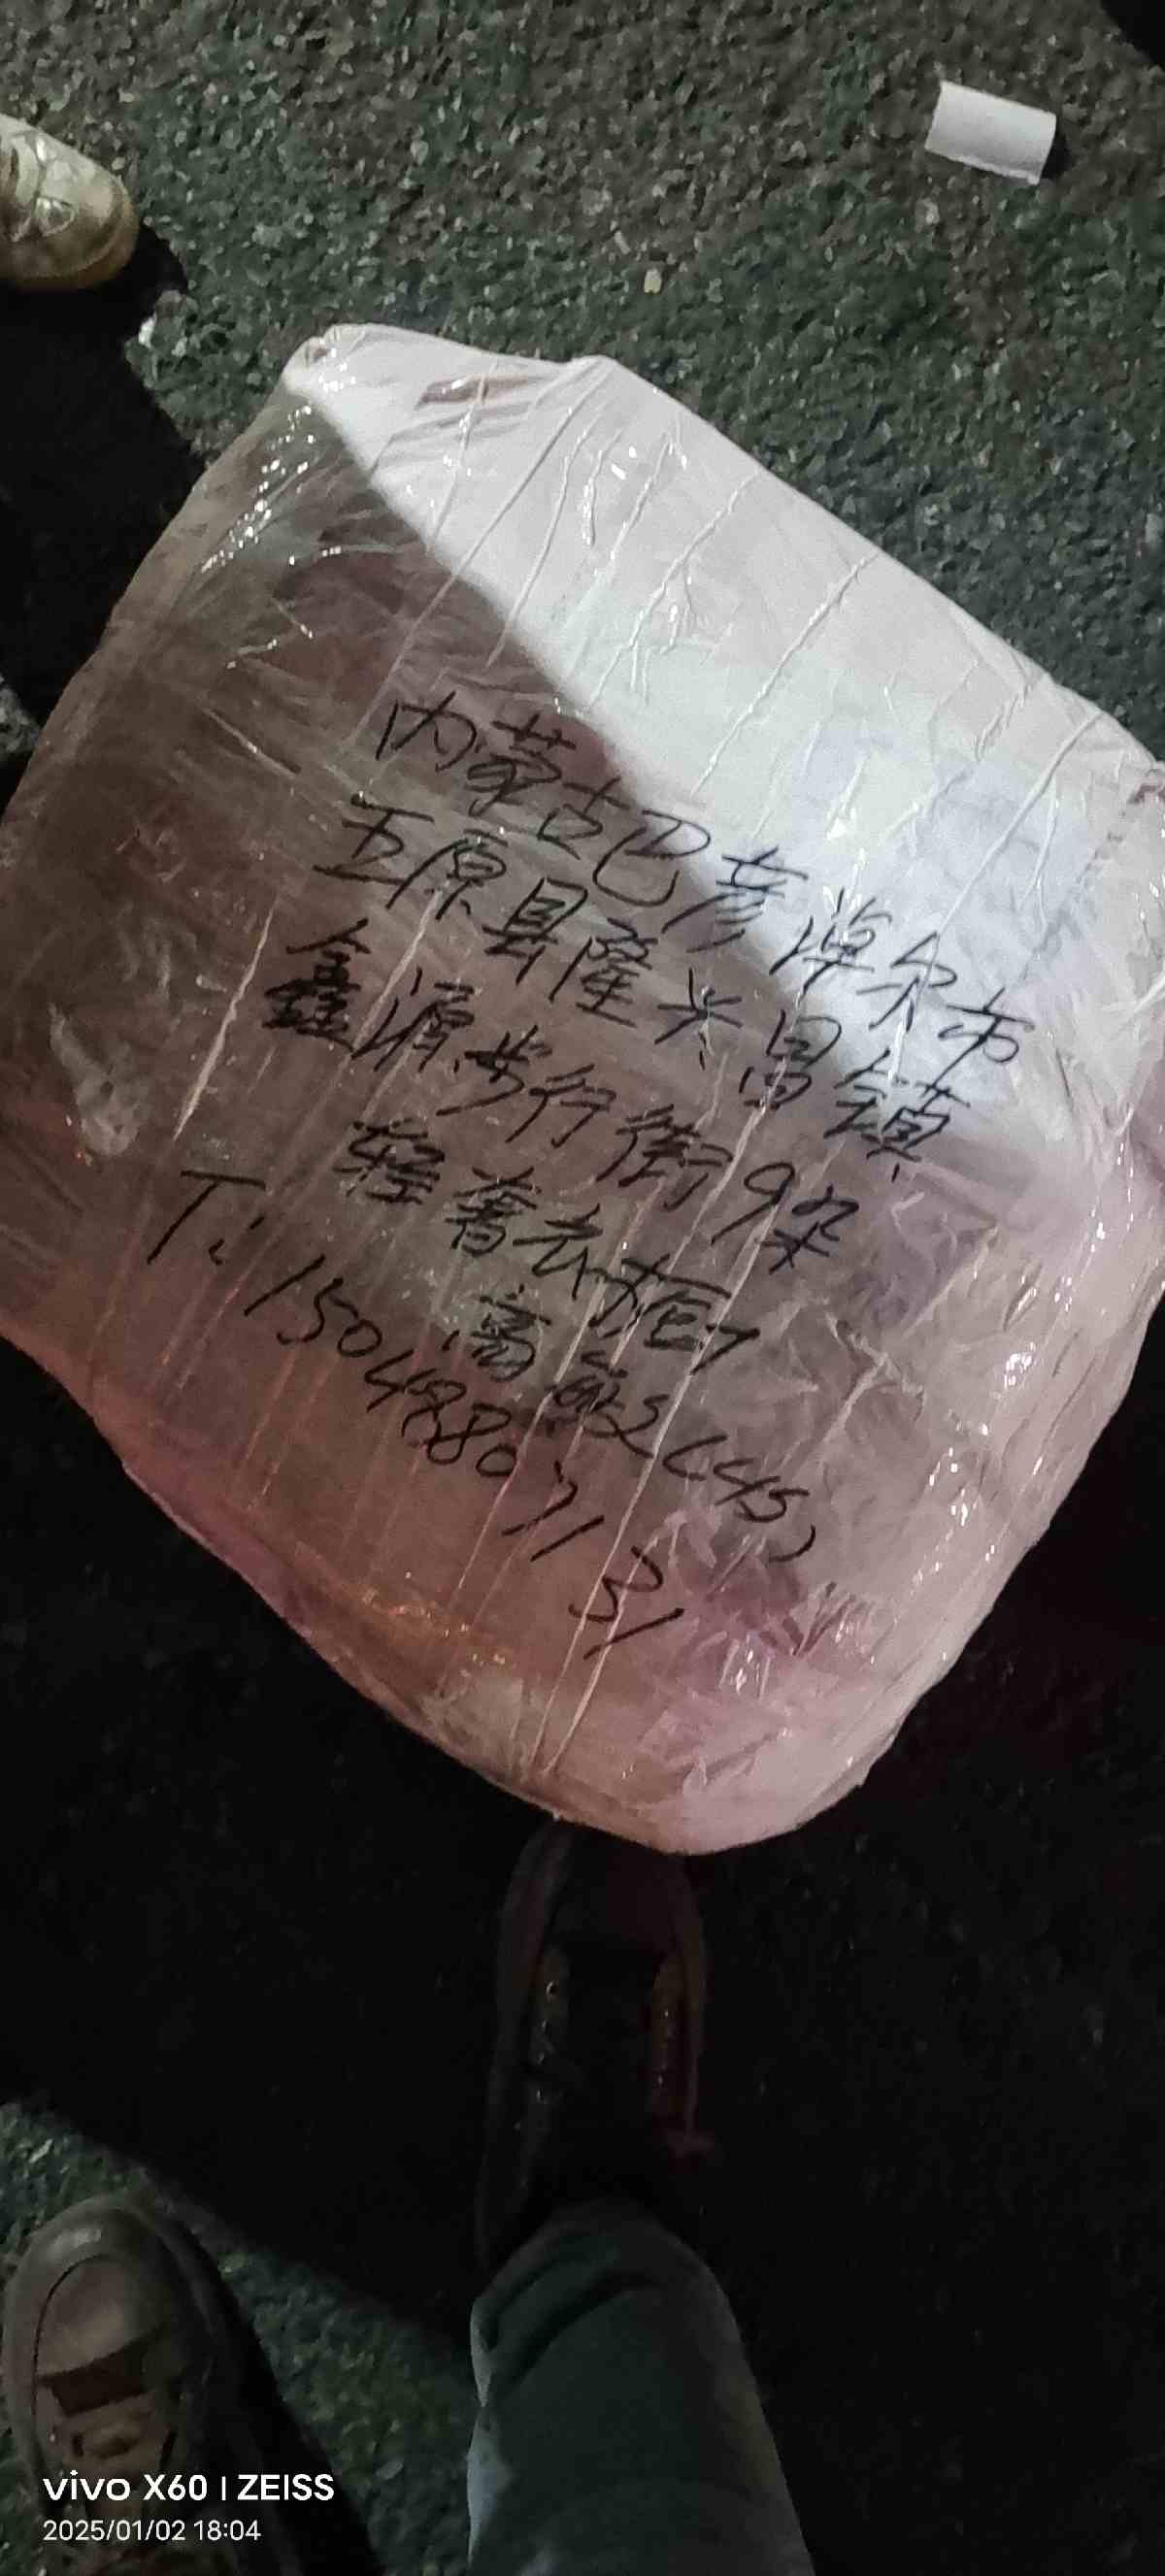 内蒙古巴彦淖尔市
五原县隆兴昌镇
鑫源步行街9栋
轻奢衣橱
高敏2(45)
T: 15048807131
vivo X60 | ZEISS
2025/01/02 18:04